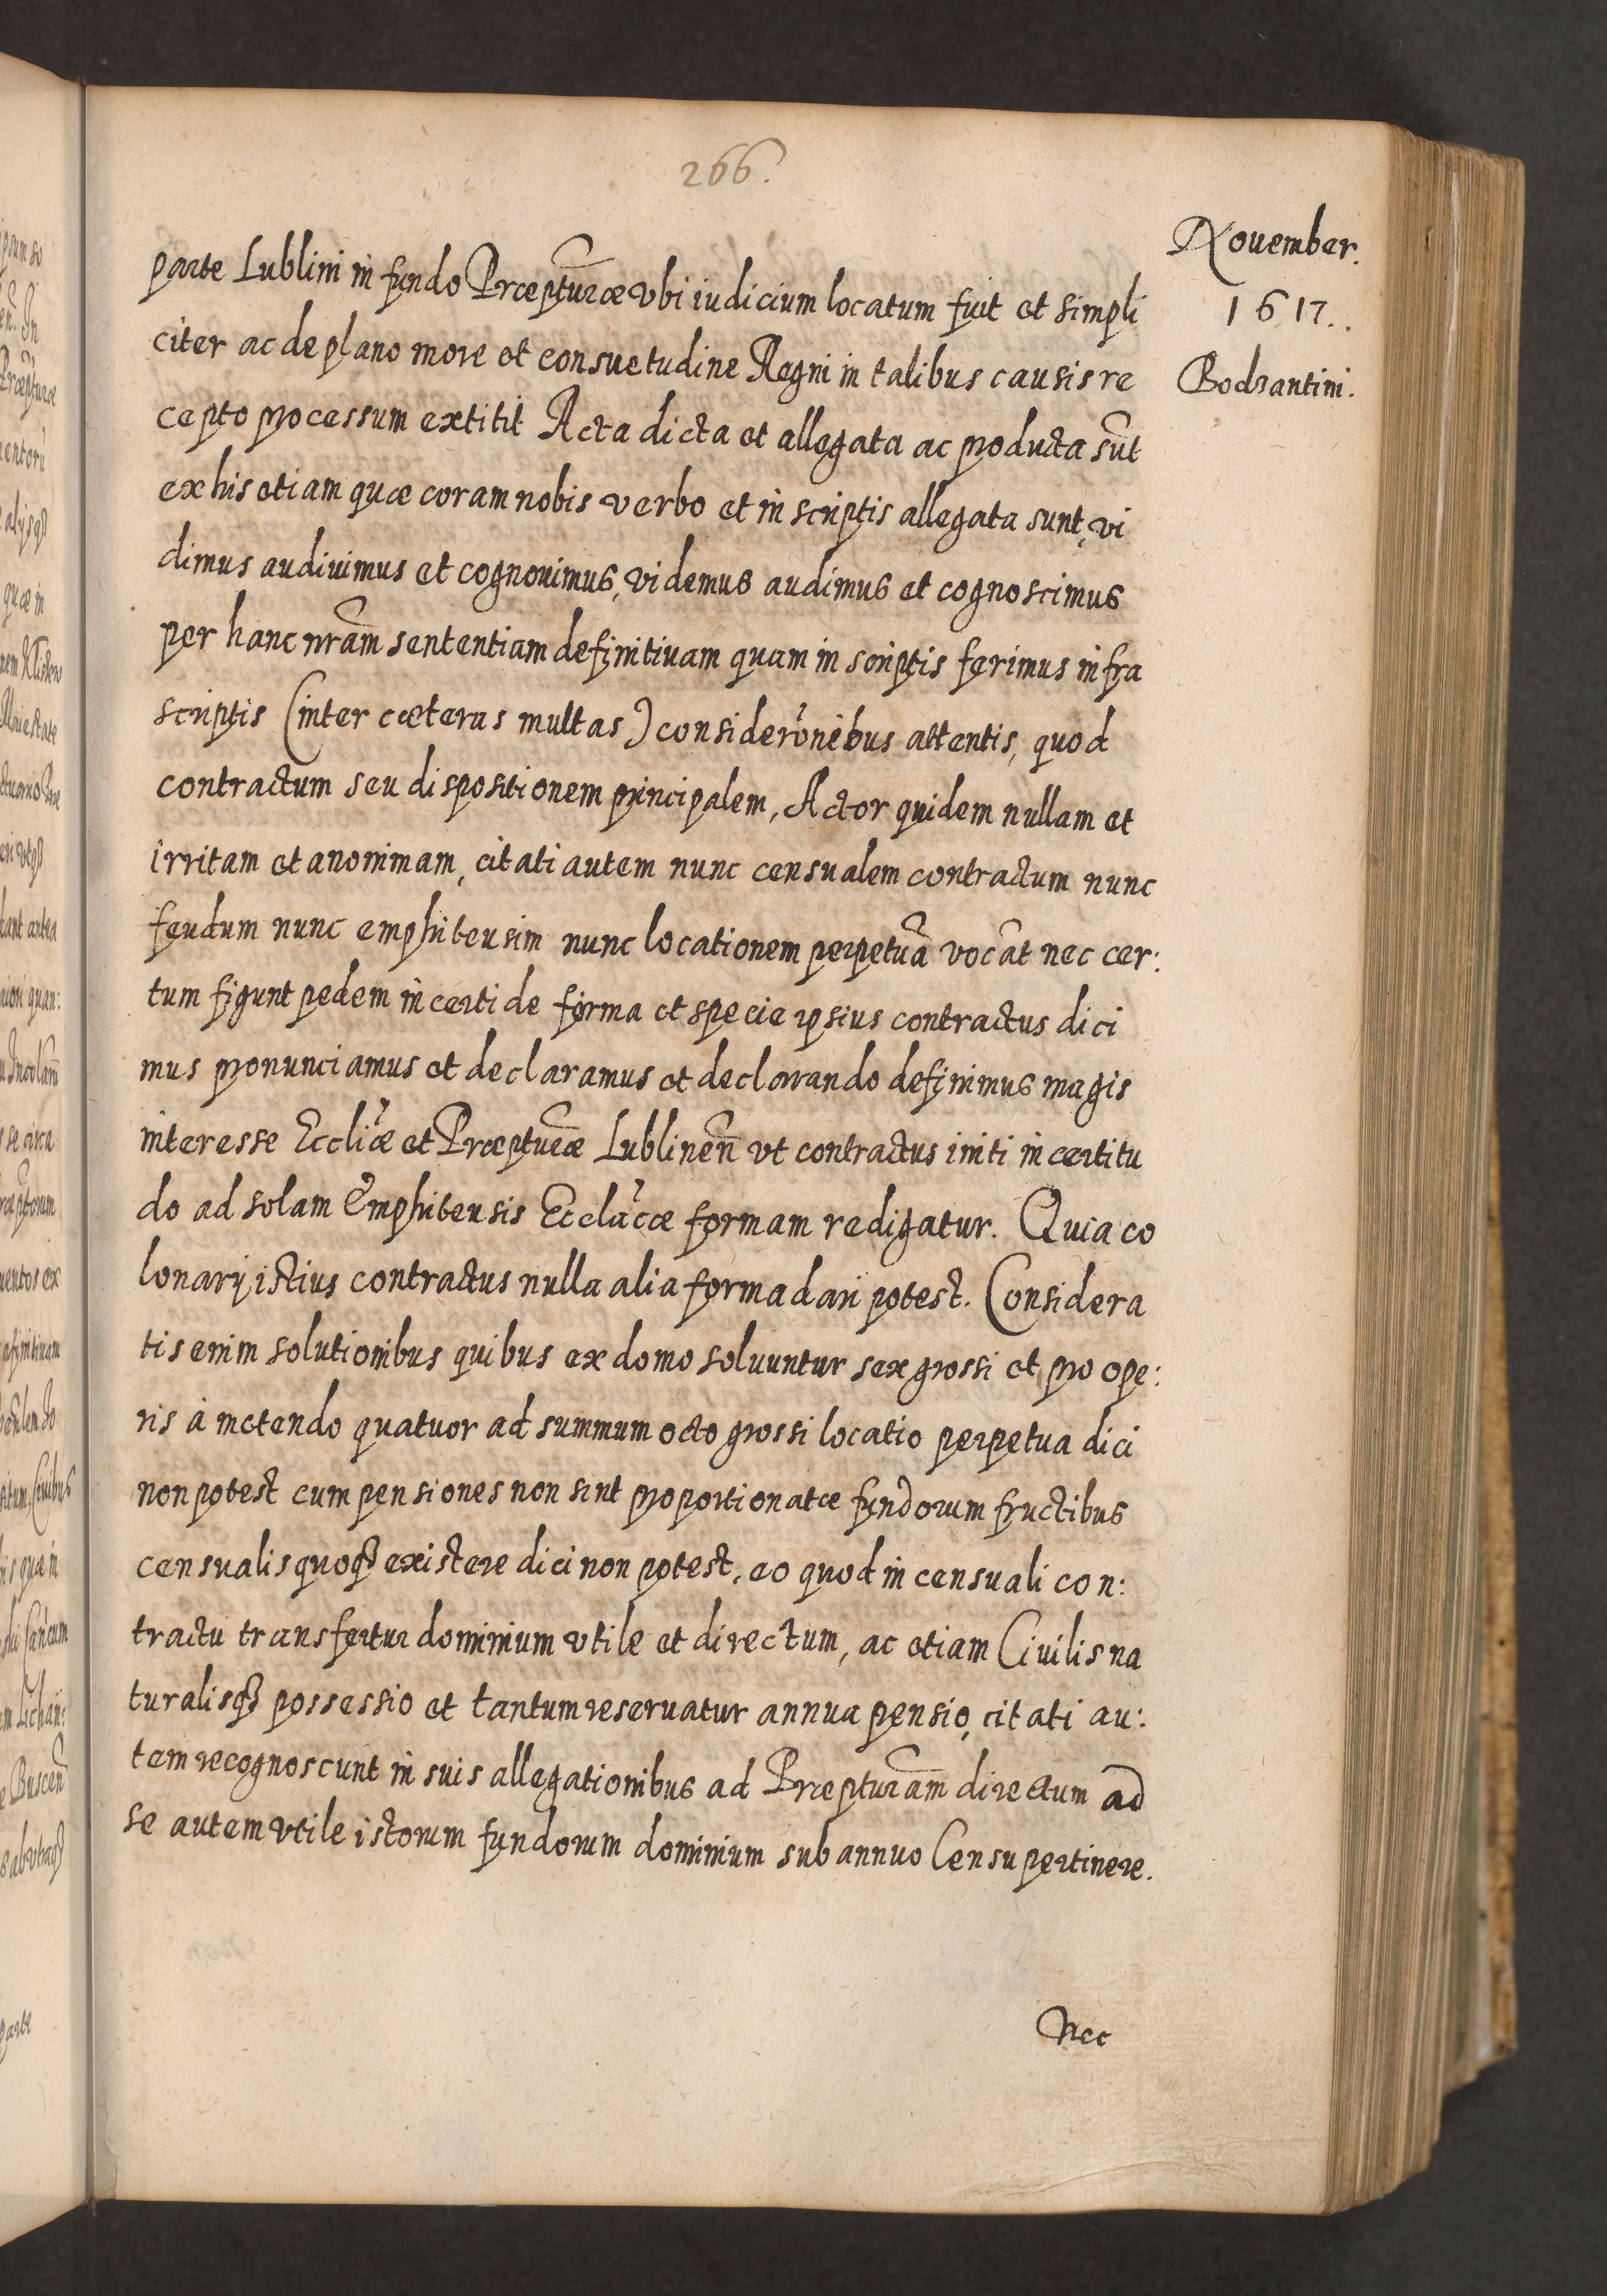 266.
Nouember.
1617..
Bodzantini.
parte Lublini in fundo Præpturæ vbi iudicium locatum fuit et simpli
citer ac de plano more et consuetudine Regni in talibus causis re
cepto processum extitit Acta dicta et allegata ac producta sūt
ex his etiam quæ coram nobis verbo et in scriptis allegata sunt, vi
dimus audiuimus et cognouimus, videmus audimus et cognoscimus
per hanc nram̃ sententiam definitiuam quam in scriptis ferimus infra
scriptis (inter cæteras multas) considerõnibus attentis, quod
contractum seu dispositionem principalem, Actor quidem nullam et
irritam et anonimam, citati autem nunc censualem contractum nunc
feudum nunc emphiteusim nunc locationem perpetuã vocãt nec cer:
tum figunt pedem incerti de forma et specie ipsius contractus dici
mus pronunciamus et declaramus et declarando definimus magis
interesse Eccliæ et Præpturæ Lublineñ vt contractus initi incertitu
do ad solam Emphiteusis Ecclãcæ formam redigatur. Quia co
lonarij istius contractus nulla alia forma dari potest. Considera
tis enim solutionibus quibus ex domo soluuntur sex grossi et pro ope:
ris à metendo quatuor ad summum octo grossi locatio perpetua dici
non potest cum pensiones non sint proportionatæ fundorum fructibus
censualis quoqȝ existere dici non potest, eo quod in censuali con:
tractu transfertur dominium vtile et directum, ac etiam Ciuilis na
turalisqȝ possessio et tantum reseruatur annua pensio, citati au:
tem recognoscunt in suis allegationibus ad Præpturãm directum ad
se autem vtile istorum fundorum dominium sub annuo Censu pertinere.
Nec